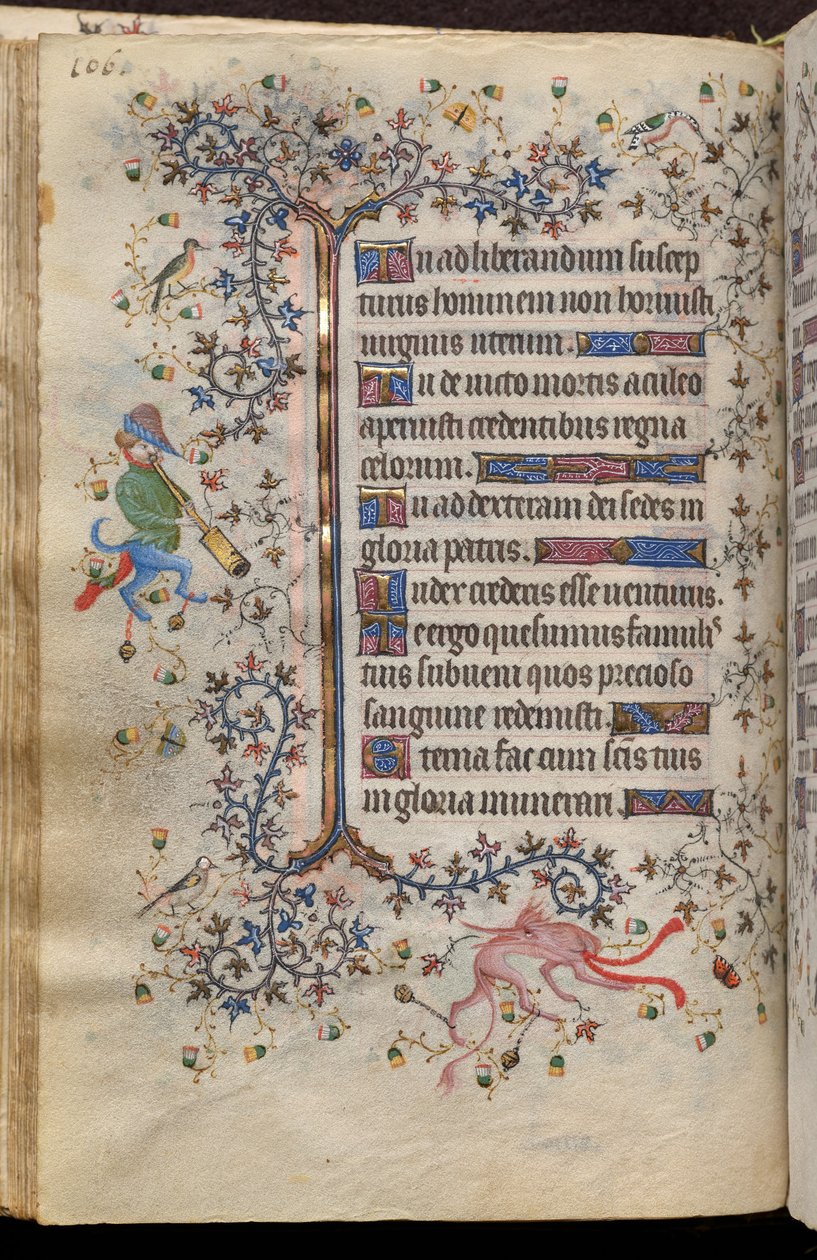 106.
Tu ad liberandum suscep
turus hominem non horruisti
uirginis uterum.
Tu deuicto mortis aculeo
aperuisti credentibus regna
celorum.
Tu ad dexteram dei sedes in
gloria patris.
Iudex crederis esse uenturus.
Te ergo quesumus famulis
tuis subueni quos precioso
sanguine redemisti.
Eterna fac cum scis tuis
in gloria munerari.